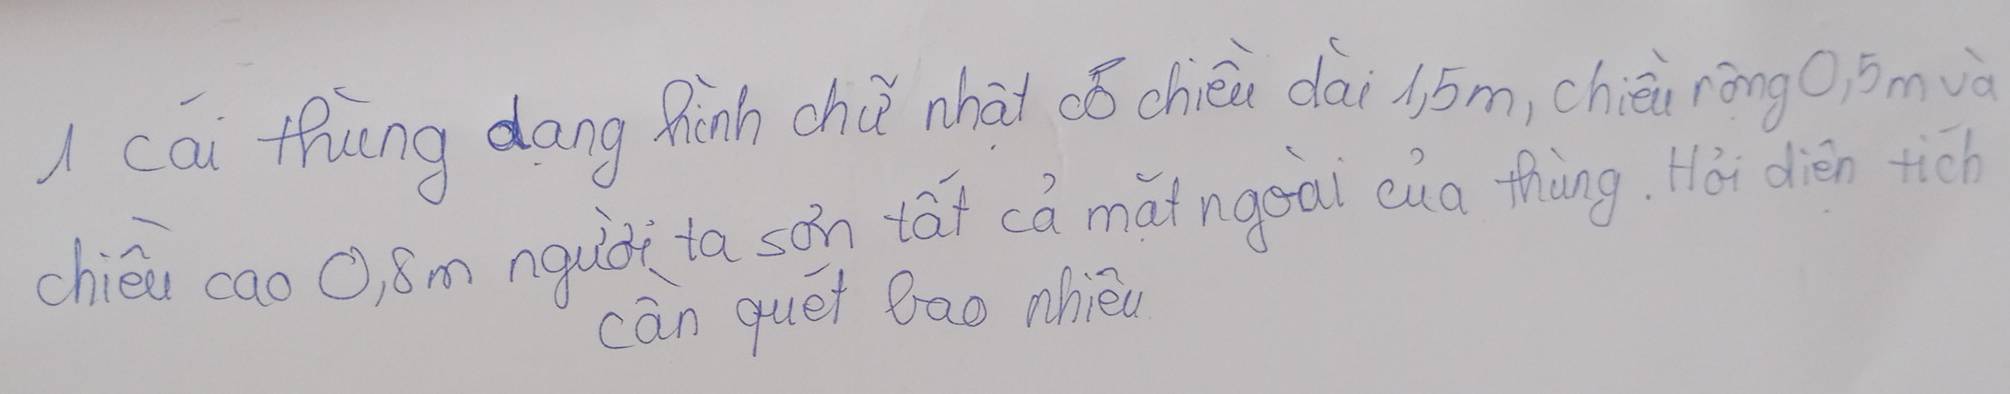 1 cái thùng dạng hình chữ nhật có chiều dài 1,5m, chiều rộng 0,5m và
chiều cao 0,8m người ta sơn tất cả mặt ngoài của thùng. Hỏi diện tích
cần quét bao nhiêu